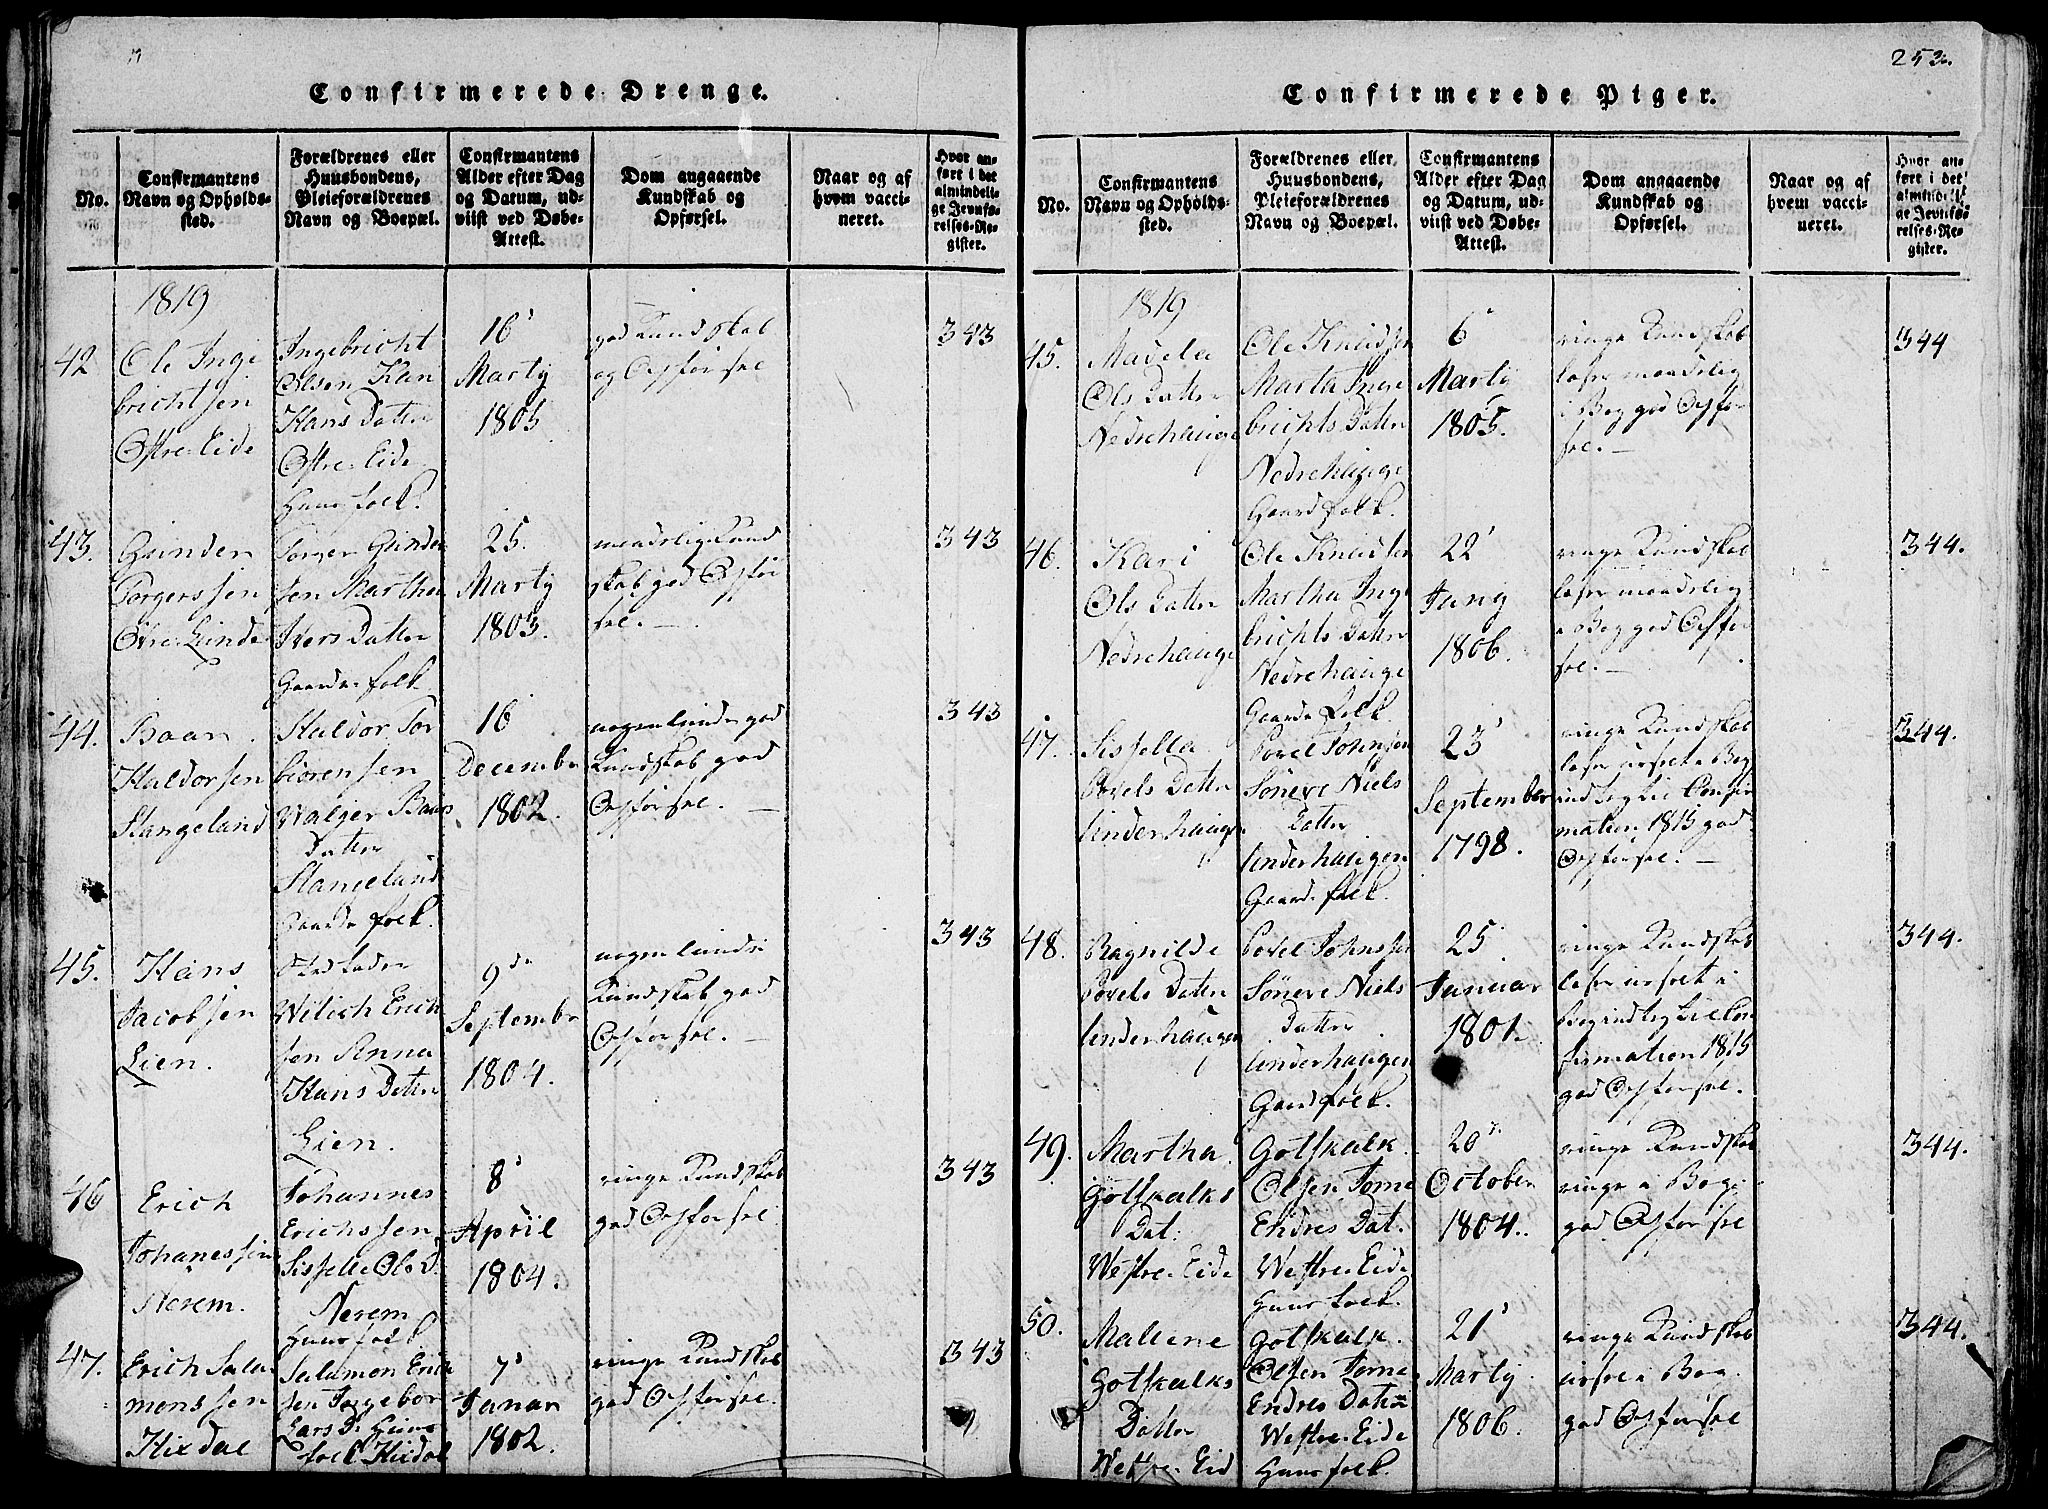 Confirmerede Drenge.
No.
Confirmantens
Navn og Opholds-
sted.
Forældrenes eller
Huusbondens,
Pleieforældrenes
Navn og Boepæl.
Confirmantens
Alder efter Dag
og Datum, ud-
viist ved Døbe-
Attest.
Dom angaaende
Kundskab og
Opførsel.
Naar og af
hvem vacci-
neret.
Hvor an-
ført i det
almindeli-
ge Jevnfø-
relses-Re-
gister.
1819
42
Ole Inge
brichtsen
Østre Eide
Ingebricht
Olsen Kari
Hans Datter
Østre Eide
Huusfolk.
16
Marty
1805
god Kundskab
og Opførsel
343
43.
Gunder
Torgerssen
Øvre Lunde
Torger Gunder
sen Martha
Ivers Datter
Gaardefolk
25.
Marty
1803.
maadelig Kund
skab god Opfør
sel.
343
44.
Baar
Haldorsen
Stangeland
Haldor Tor
biørensen
Walger Baars
Datter
Stangeland
Gaardefolk.
16
December
1802.
nogenlunde god
Kundskab god
Opførsel.
343
45.
Hans
Jacobsen
Lien.
Wilich Erich
sen Anna
Hans Datter
Lien.
9de
September
1804.
nogenlunde
Kundskab god
Opførsel.
343
46
Erich
Johanessen
Nerem.
Johannes
Erichssen
Sisselle Ols D.
Nerem
Huusfolk
8
April
1804.
ringe Kundskab
god Opførsel
343
47.
Erich Salo
monssen
Hixdal
Salamon Erich
sen Ingebor
Lars D. Huus
folk Hixdal
7
Januar
1802.
ringe Kundskab
god Opførsel.
343
253.
Confirmerede Piger.
No.
Confirmantens
Navn og Opholds-
sted.
Forældrenes eller
Huusbondens,
Pleieforældrenes
Navn og Boepæl.
Confirmantens
Alder efter Dag
og Datum, ud-
viist ved Døbe-
Attest.
Dom angaaende
Kundskab og
Opførsel.
Naar og af
hvem vacci-
neret.
Hvor an-
ført i det
almindeli-
ge Jevnfø-
relses-Re-
gister.
1819
45.
Madela
Ols Datter
Nedrehauge
Ole Knudsen
Marta Inge
brichts Datter
Nedrehauge
Gaardfolk.
6
Marty
1805.
ringe Kundskab
læser maadelig
i Bog god Opfør
sel.
344
46.
Kari
Ols Datter
Nedrehauge
Ole Knudsen
Martha Inge
brichts Datter
Nedrehauge
Gaardefolk.
22
Juny
1806.
ringe Kundskab
læser maadelig
i Bog god Opfør
sel.
344.
47.
Sissella
Povels Datter
Underhaugen
Povel Johnsen
Søneve Niels
Datter
Underhaugen
Gaardefolk.
23
September
1798.
ringe Kundskab
læser urfelt i Bog
Confir
mation 1815 god
Opførsel.
344.
48.
Ragnilde
Povels Datter
Underhaugen
Povel Johnssen
Søneve Niels
Datter
Underhaugen
Gaardfolk.
25
Januar
1801.
ringe Kundskab
læser urfelt i
Bog
firmation 1815
god Opførsel.
344.
49.
Martha
Gotskalks
Dat.
Westre Eide
Gotskalk
Olsen Torne
Endres Dat.
Westre Eide
Huusfolk.
20
October
1804.
ringe Kundskab
ringe i Bog
god Opførsel
344.
50.
Mallene
Gotskalks
Datter
Westre Eid
Gotskalk
Olsen Torne
Endres Dater
Westre Eide
Huusfolk.
21
Marty
1806.
ringe Kundskab
urfel i Bog.
god Opførsel
344.